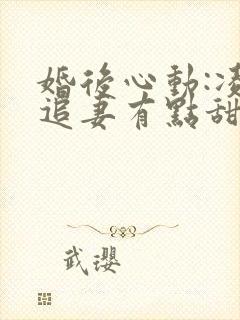 婚後心動:凌
追妻有點甜
武瓔